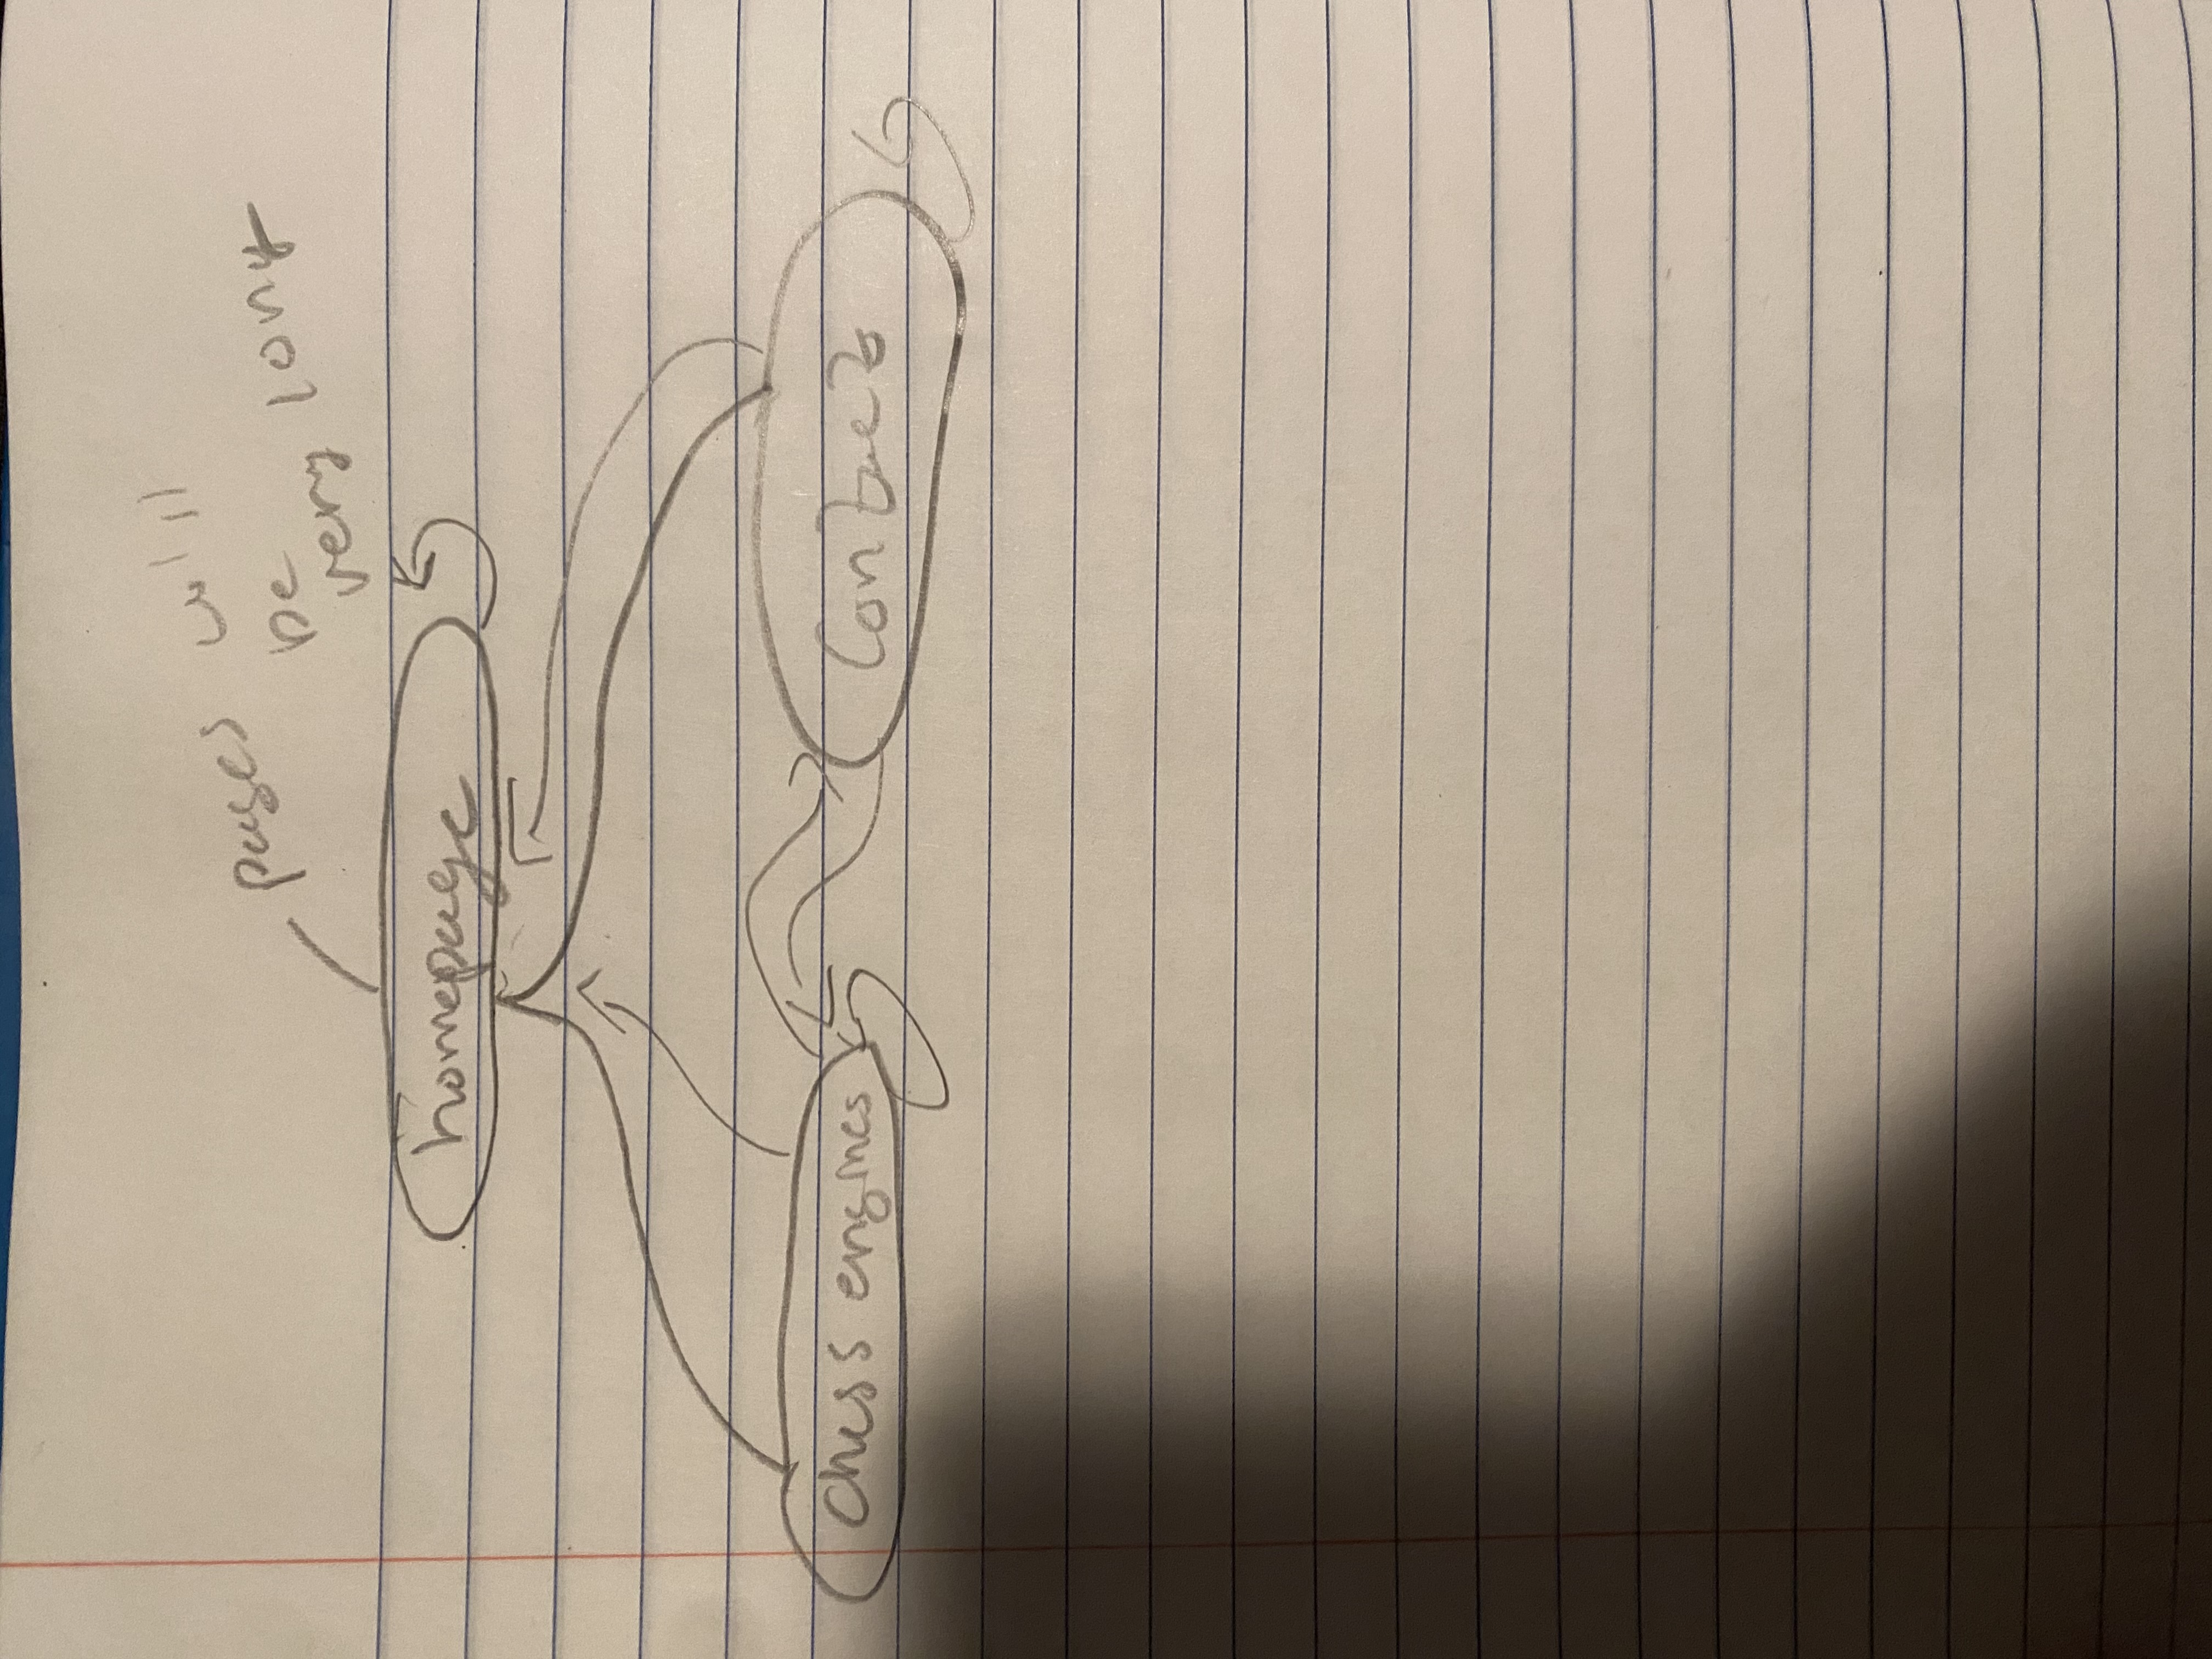 pages will
be
very long
homepage
chess engines
Contact